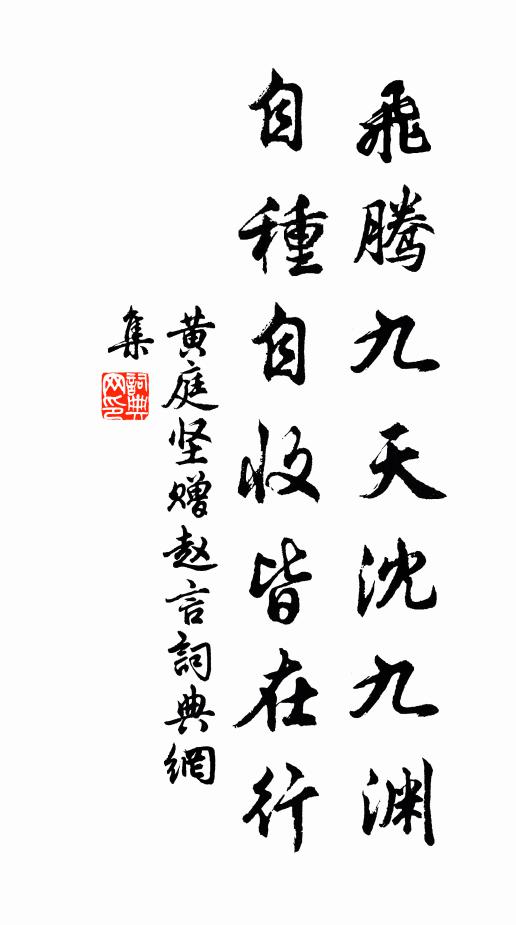 飛騰九天沈九渊
自種自收皆在行
黄庭坚赠赵言詞典網
集
詞典网印